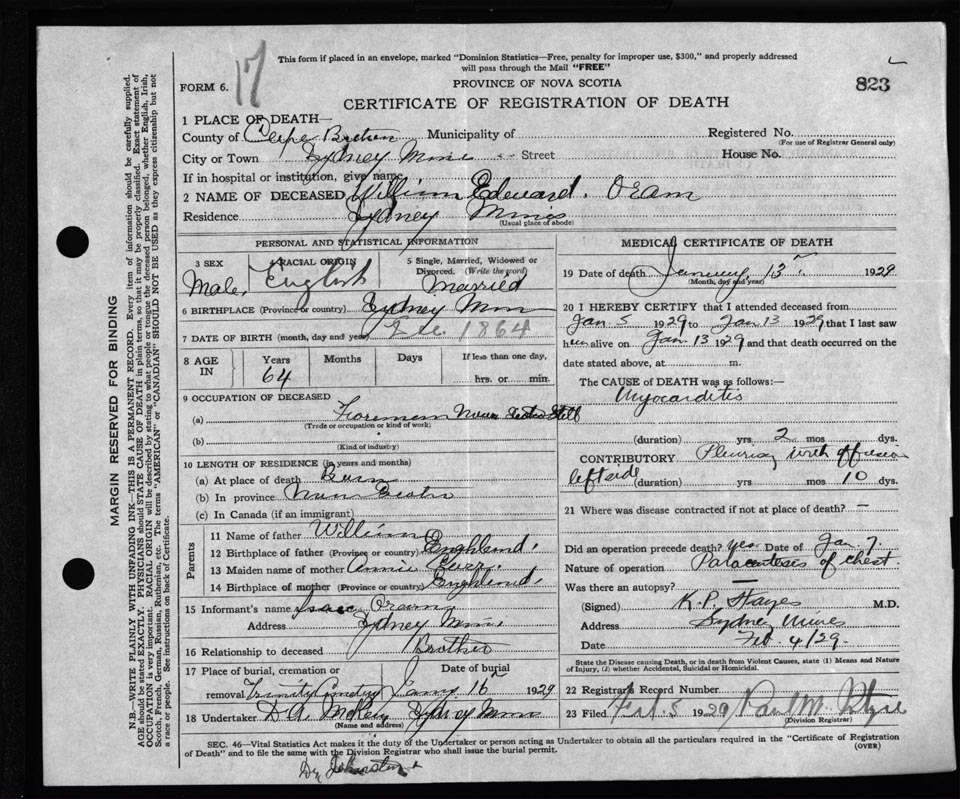 This form if placed in an envelope, marked "Dominion Statistics—Free, penalty for improper use, $300," and properly addressed
will pass through the Mail "FREE"
17
FORM 6.
PROVINCE OF NOVA SCOTIA
823
CERTIFICATE OF REGISTRATION OF DEATH
1 PLACE OF DEATH—
County of Cape Breton Municipality of Registered No.
(For use of Registrar General only)
City or Town Sydney Mines Street House No.
If in hospital or institution, give name
2 NAME OF DECEASED William Edward. Oram
Residence Sydney Mines
(Usual place of abode)
PERSONAL AND STATISTICAL INFORMATION
3 SEX Male. 4 RACIAL ORIGIN English 5 Single, Married, Widowed or Divorced. (Write the word) Married
6 BIRTHPLACE (Province or country) Sydney Mines
7 DATE OF BIRTH (month, day and year) Dec. 1864
8 AGE IN Years 64 Months Days If less than one day, hrs. or min.
9 OCCUPATION OF DECEASED
(a) Foreman Nova Scotia Steel
(Trade or occupation or kind of work)
(b)
(Kind of industry)
10 LENGTH OF RESIDENCE (in years and months)
(a) At place of death Born
(b) In province Nova Scotia
(c) In Canada (if an immigrant)
Parents
11 Name of father William
12 Birthplace of father (Province or country) England.
13 Maiden name of mother Annie
14 Birthplace of mother (Province or country) England.
15 Informant's name Isaac Oram
Address Sydney Mines
16 Relationship to deceased Brother
17 Place of burial, cremation or removal Trinity Cemetery Date of burial Jany 16 1929
18 Undertaker D A McKay Sydney Mines
(Name and address)
MEDICAL CERTIFICATE OF DEATH
19 Date of death January 13 1929
(Month, day and year)
20 I HEREBY CERTIFY that I attended deceased from
Jan 5 1929 to Jan 13 1929 that I last saw
him alive on Jan. 13 1929 and that death occurred on the
date stated above, at m.
The CAUSE of DEATH was as follows:—
Myocarditis
(duration) yrs 2 mos dys.
CONTRIBUTORY Pleurisy with effusion
left side (duration) yrs mos 10 dys.
21 Where was disease contracted if not at place of death? —
Did an operation precede death? yes Date of Jan 7.
Nature of operation Paracentesis of chest.
Was there an autopsy? —
(Signed) K. P. Hayes M.D.
Address Sydney Mines
Date Feb 4/29.
State the Disease causing Death, or in death from Violent Causes, state (1) Means and Nature
of Injury, (2) whether Accidental, Suicidal or Homicidal.
22 Registrar's Record Number
23 Filed Feb. 5 1929 Paul M.
(Division Registrar)
SEC. 46—Vital Statistics Act makes it the duty of the Undertaker or person acting as Undertaker to obtain all the particulars required in the "Certificate of Registration
of Death" and to file the same with the Division Registrar who shall issue the burial permit. (OVER)
Dr Johnstone
MARGIN RESERVED FOR BINDING
N.B.—WRITE PLAINLY WITH UNFADING INK—THIS IS A PERMANENT RECORD. Every item of information should be carefully supplied.
AGE should be stated EXACTLY. PHYSICIANS should STATE CAUSE OF DEATH in plain terms, so that it may be properly classified. Exact statement of
OCCUPATION is very important. RACIAL ORIGIN will be described by stating to what people or tongue the deceased person belonged, whether English, Irish,
Scotch, French, German, Russian, Ruthenian, etc. The terms "AMERICAN" or "CANADIAN" SHOULD NOT BE USED as they express citizenship but not
a race or people. See instructions on back of Certificate.